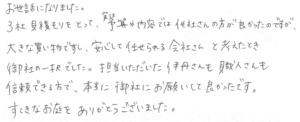 お世話になりました。
3社見積もりをとって、実は予算や内容では他社さんの方が良かったのですが、
大きな買い物ですし、安心して任せられる会社さんと考えたとき
御社の一択でした。担当いただいた伊丹さんも職人さんも
信頼できる方で、本当に御社にお願いして良かったです。
すてきなお庭をありがとうございました。